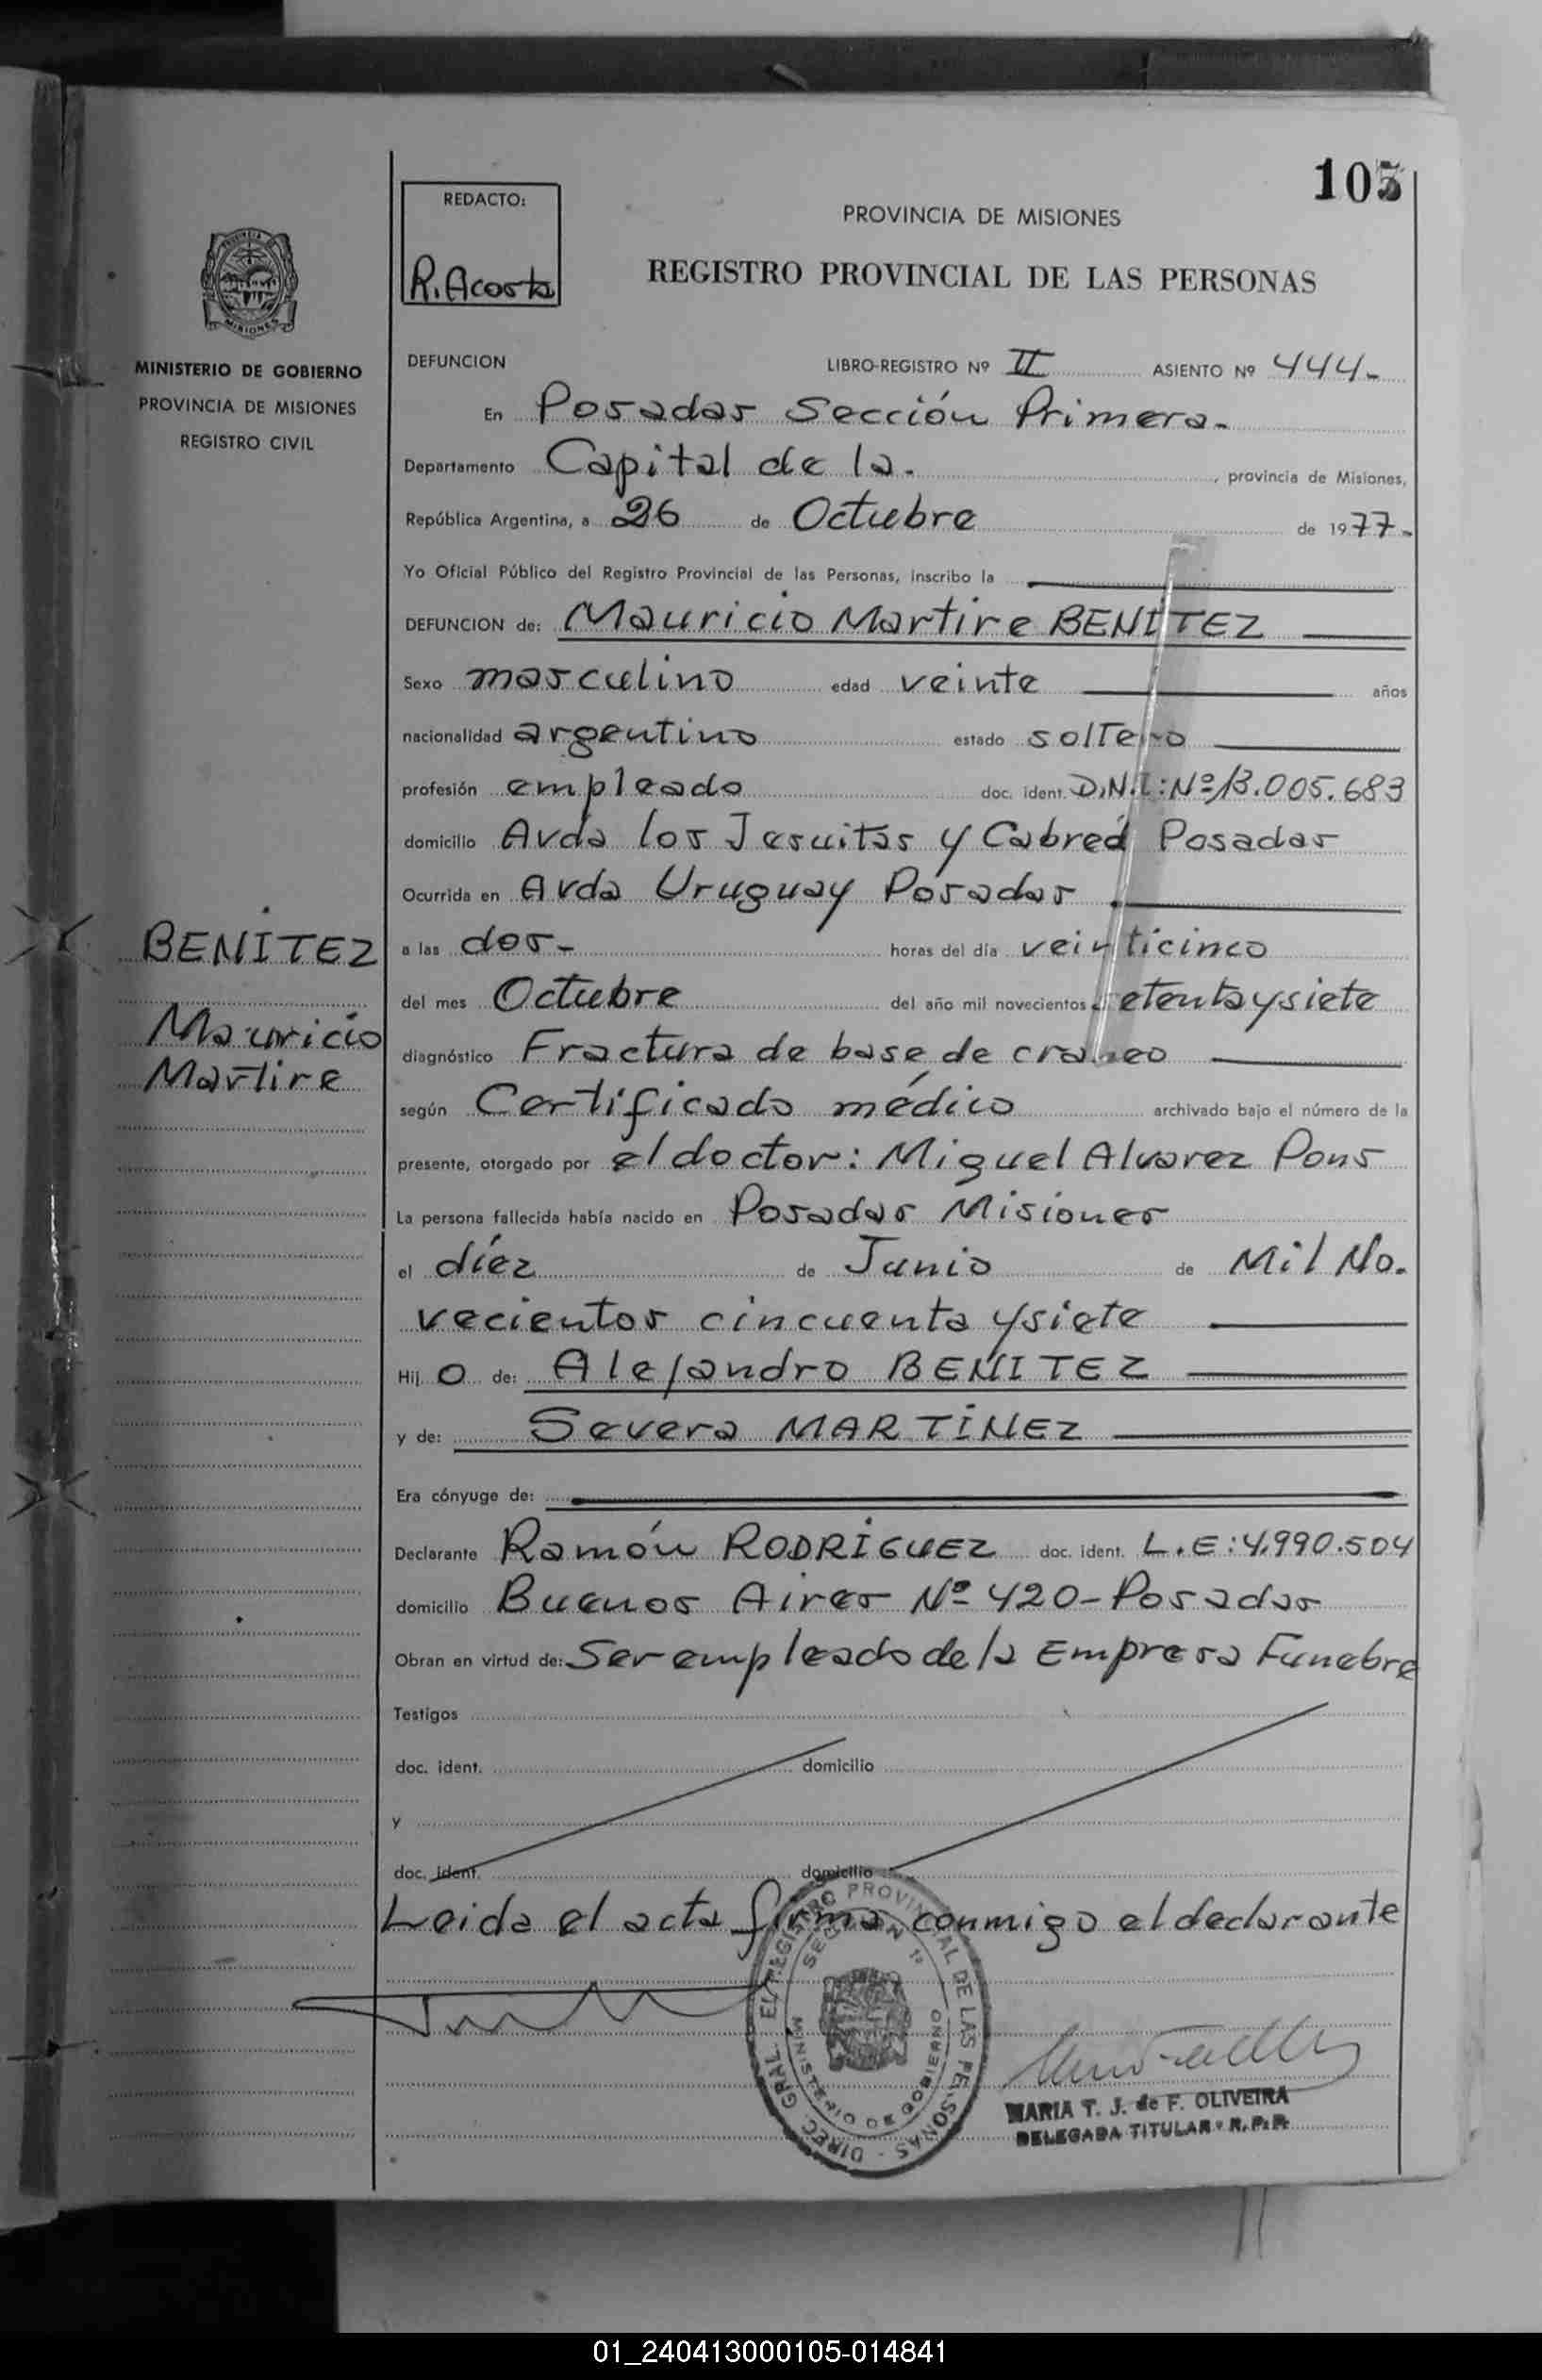 105
REDACTO:
R. Acosta
PROVINCIA DE MISIONES
REGISTRO PROVINCIAL DE LAS PERSONAS
MISIONES
MINISTERIO DE GOBIERNO
PROVINCIA DE MISIONES
REGISTRO CIVIL
DEFUNCION LIBRO-REGISTRO Nº II ASIENTO Nº 444-
En Posadas Sección Primera-
Departamento Capital de la. , provincia de Misiones,
República Argentina, a 26 de Octubre de 1977-
Yo Oficial Público del Registro Provincial de las Personas, inscribo la
DEFUNCION de: Mauricio Martire BENITEZ
Sexo masculino edad veinte años
nacionalidad argentino estado soltero
profesión empleado doc. ident. D.N.I: Nº 13.005.683
domicilio Avda los Jesuitas y Cabred Posadas
Ocurrida en Avda Uruguay Posadas
BENITEZ
Mauricio
Martire
a las dos- horas del día veinticinco
del mes Octubre del año mil novecientos setentaysiete
diagnóstico Fractura de base de craneo
según Certificado médico archivado bajo el número de la
presente, otorgado por el doctor: Miguel Alvarez Pons
La persona fallecida había nacido en Posadas Misiones
el díez de Junio de Mil No.
vecientos cincuenta ysiete
Hij o de: Alejandro BENITEZ
y de: Severa MARTÍNEZ
Era cónyuge de:
Declarante Ramón RODRÍGUEZ doc. ident. L.E: 4.990.504
domicilio Buenos Aires Nº 420-Posadas
Obran en virtud de: Ser empleado de la Empresa Funebre
Testigos
doc. ident. domicilio
y
doc. ident. domicilio
Leida el acta firma conmigo el declarante
DIREC. GRAL. EL REGISTRO PROVINCIAL DE LAS PERSONAS -
SECCION 1ª
MINISTERIO DE GOBIERNO
MARIA T. J. de F. OLIVEIRA
DELEGADA TITULAR - R.P.P.
01_240413000105-014841